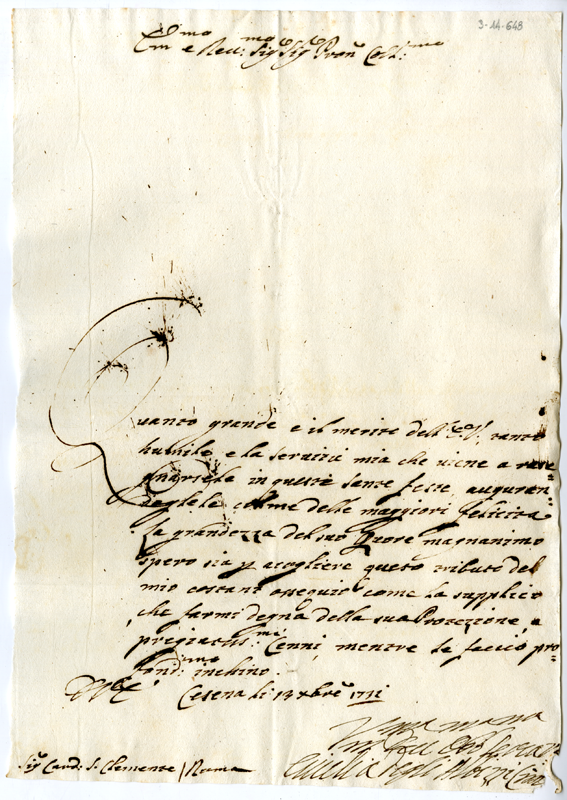 3-14-648
Em.mo e Rev.mo Sig.r Sig.r Pron Col.mo
Quanto grande e il merito dell' E.V. tanto
humile e la servitù mia che viene a rase=
gnarsele in queste sante feste, auguran=
doglele colme delle maggiori felicità
La grandezza del suo Quore magnanimo
spero sia p acogliere questo tributo del
mio costant ossequio come la supplico
che farmi degna della sua Protezione, e
pregiatiss.mi Cenni, mentre le faccio pro=
fond.mo inchino
Cesena li 13 xbre 1711
Sig.r Card: S. Clemente / Roma